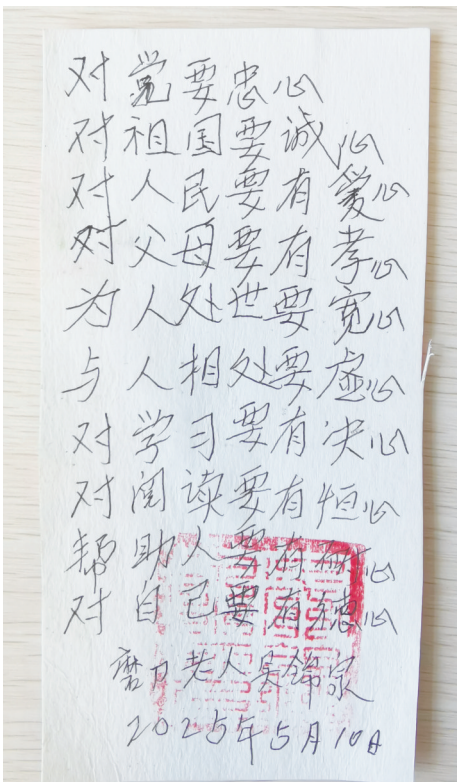 对党要忠心
对祖国要诚心
对人民要有爱心
对父母要有孝心
为人处世要宽心
与人相处要虚心
对学习要有决心
对阅读要有恒心
帮助人要有耐心
对自己要有德心
磨刀老人吴锦泉
2025年5月10日